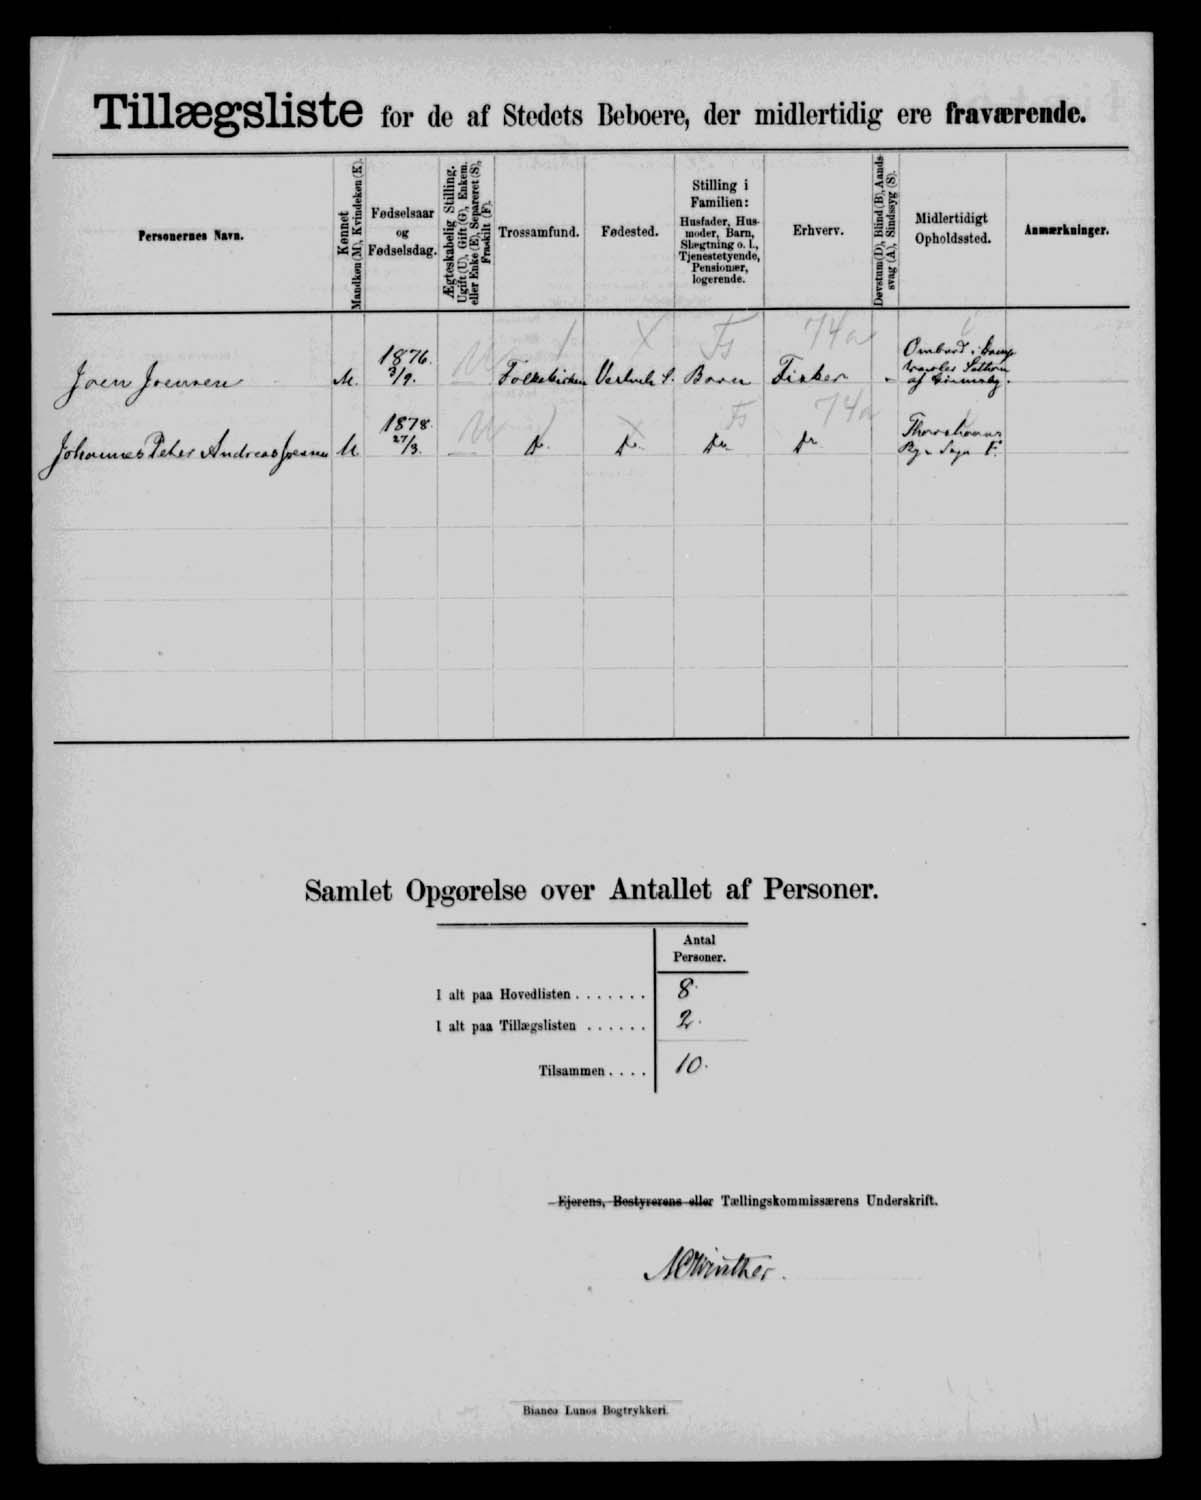 Tillægsliste for de af Stedets Beboere, der midlertidig ere fraværende.
Personernes Navn.
Kønnet
Mandkøn (M), Kvindekøn (K).
Fødselsaar
og
Fødselsdag.
Ægteskabelig Stilling.
Ugift (U), Gift (G), Enkem.
eller Enke (E), Separeret (S),
Fraskilt (F).
Trossamfund.
Fødested.
Stilling i
Familien:
Husfader, Hus-
moder, Barn,
Slægtning o. l.,
Tjenestetyende,
Pensionær,
logerende.
Erhverv.
Døvstum (D), Blind (B), Aands-
svag (A), Sindssyg (S).
Midlertidigt
Opholdssted.
Anmærkninger.
Joen Joensen M. 1876. 3/9. Folkekirken Barn Fisker
Ombord i
af Grimsby.
74a
Fs
Johannes Peter Andreas Joensen M 1878. 27/3. Do. Do. Do. Do.
Thorshavn
74a
Fs
Samlet Opgørelse over Antallet af Personer.
Antal
Personer.
I alt paa Hovedlisten . . . . . . . 8.
I alt paa Tillægslisten . . . . . . 2.
Tilsammen . . . . 10.
Ejerens, Bestyrerens eller Tællingskommissærens Underskrift.
Winther.
Bianco Lunos Bogtrykkeri.